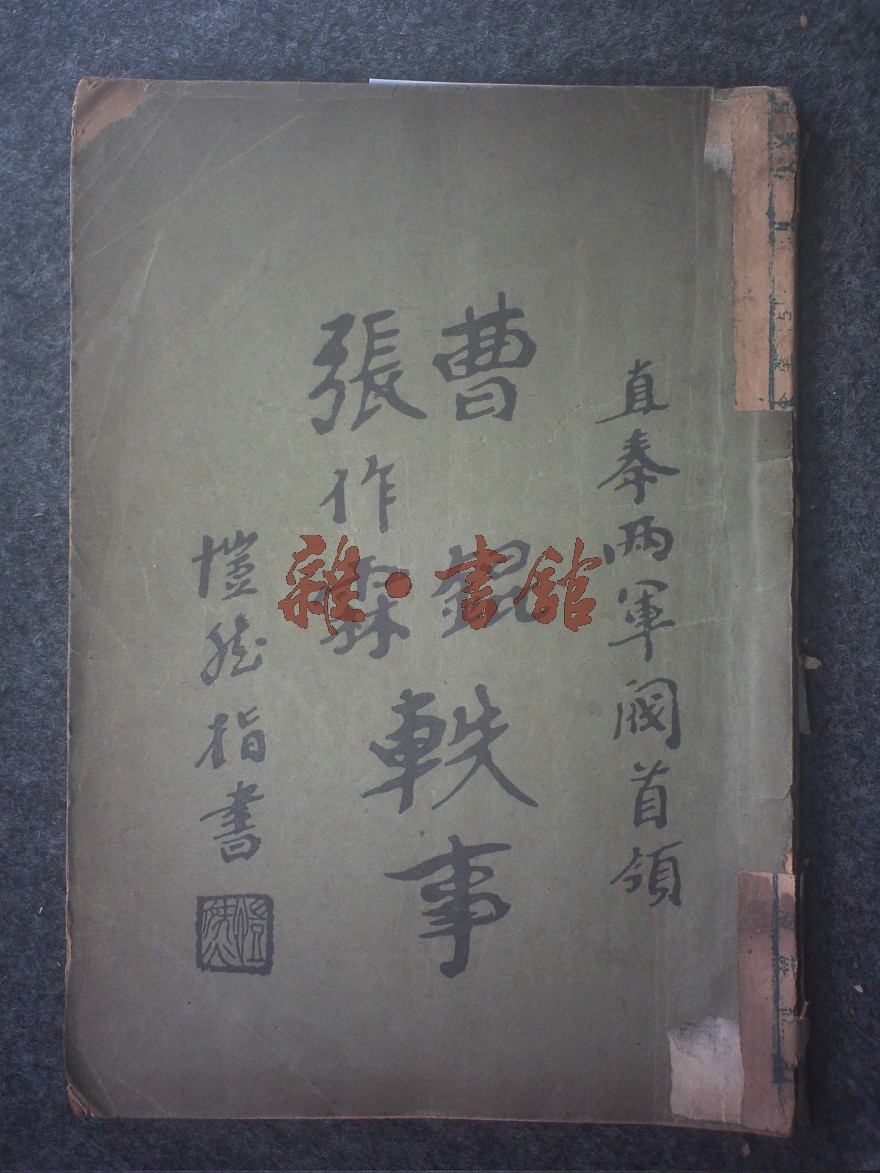 直奉兩軍閥首領
曹錕
張作霖
軼事
愷然指書
雜·書館